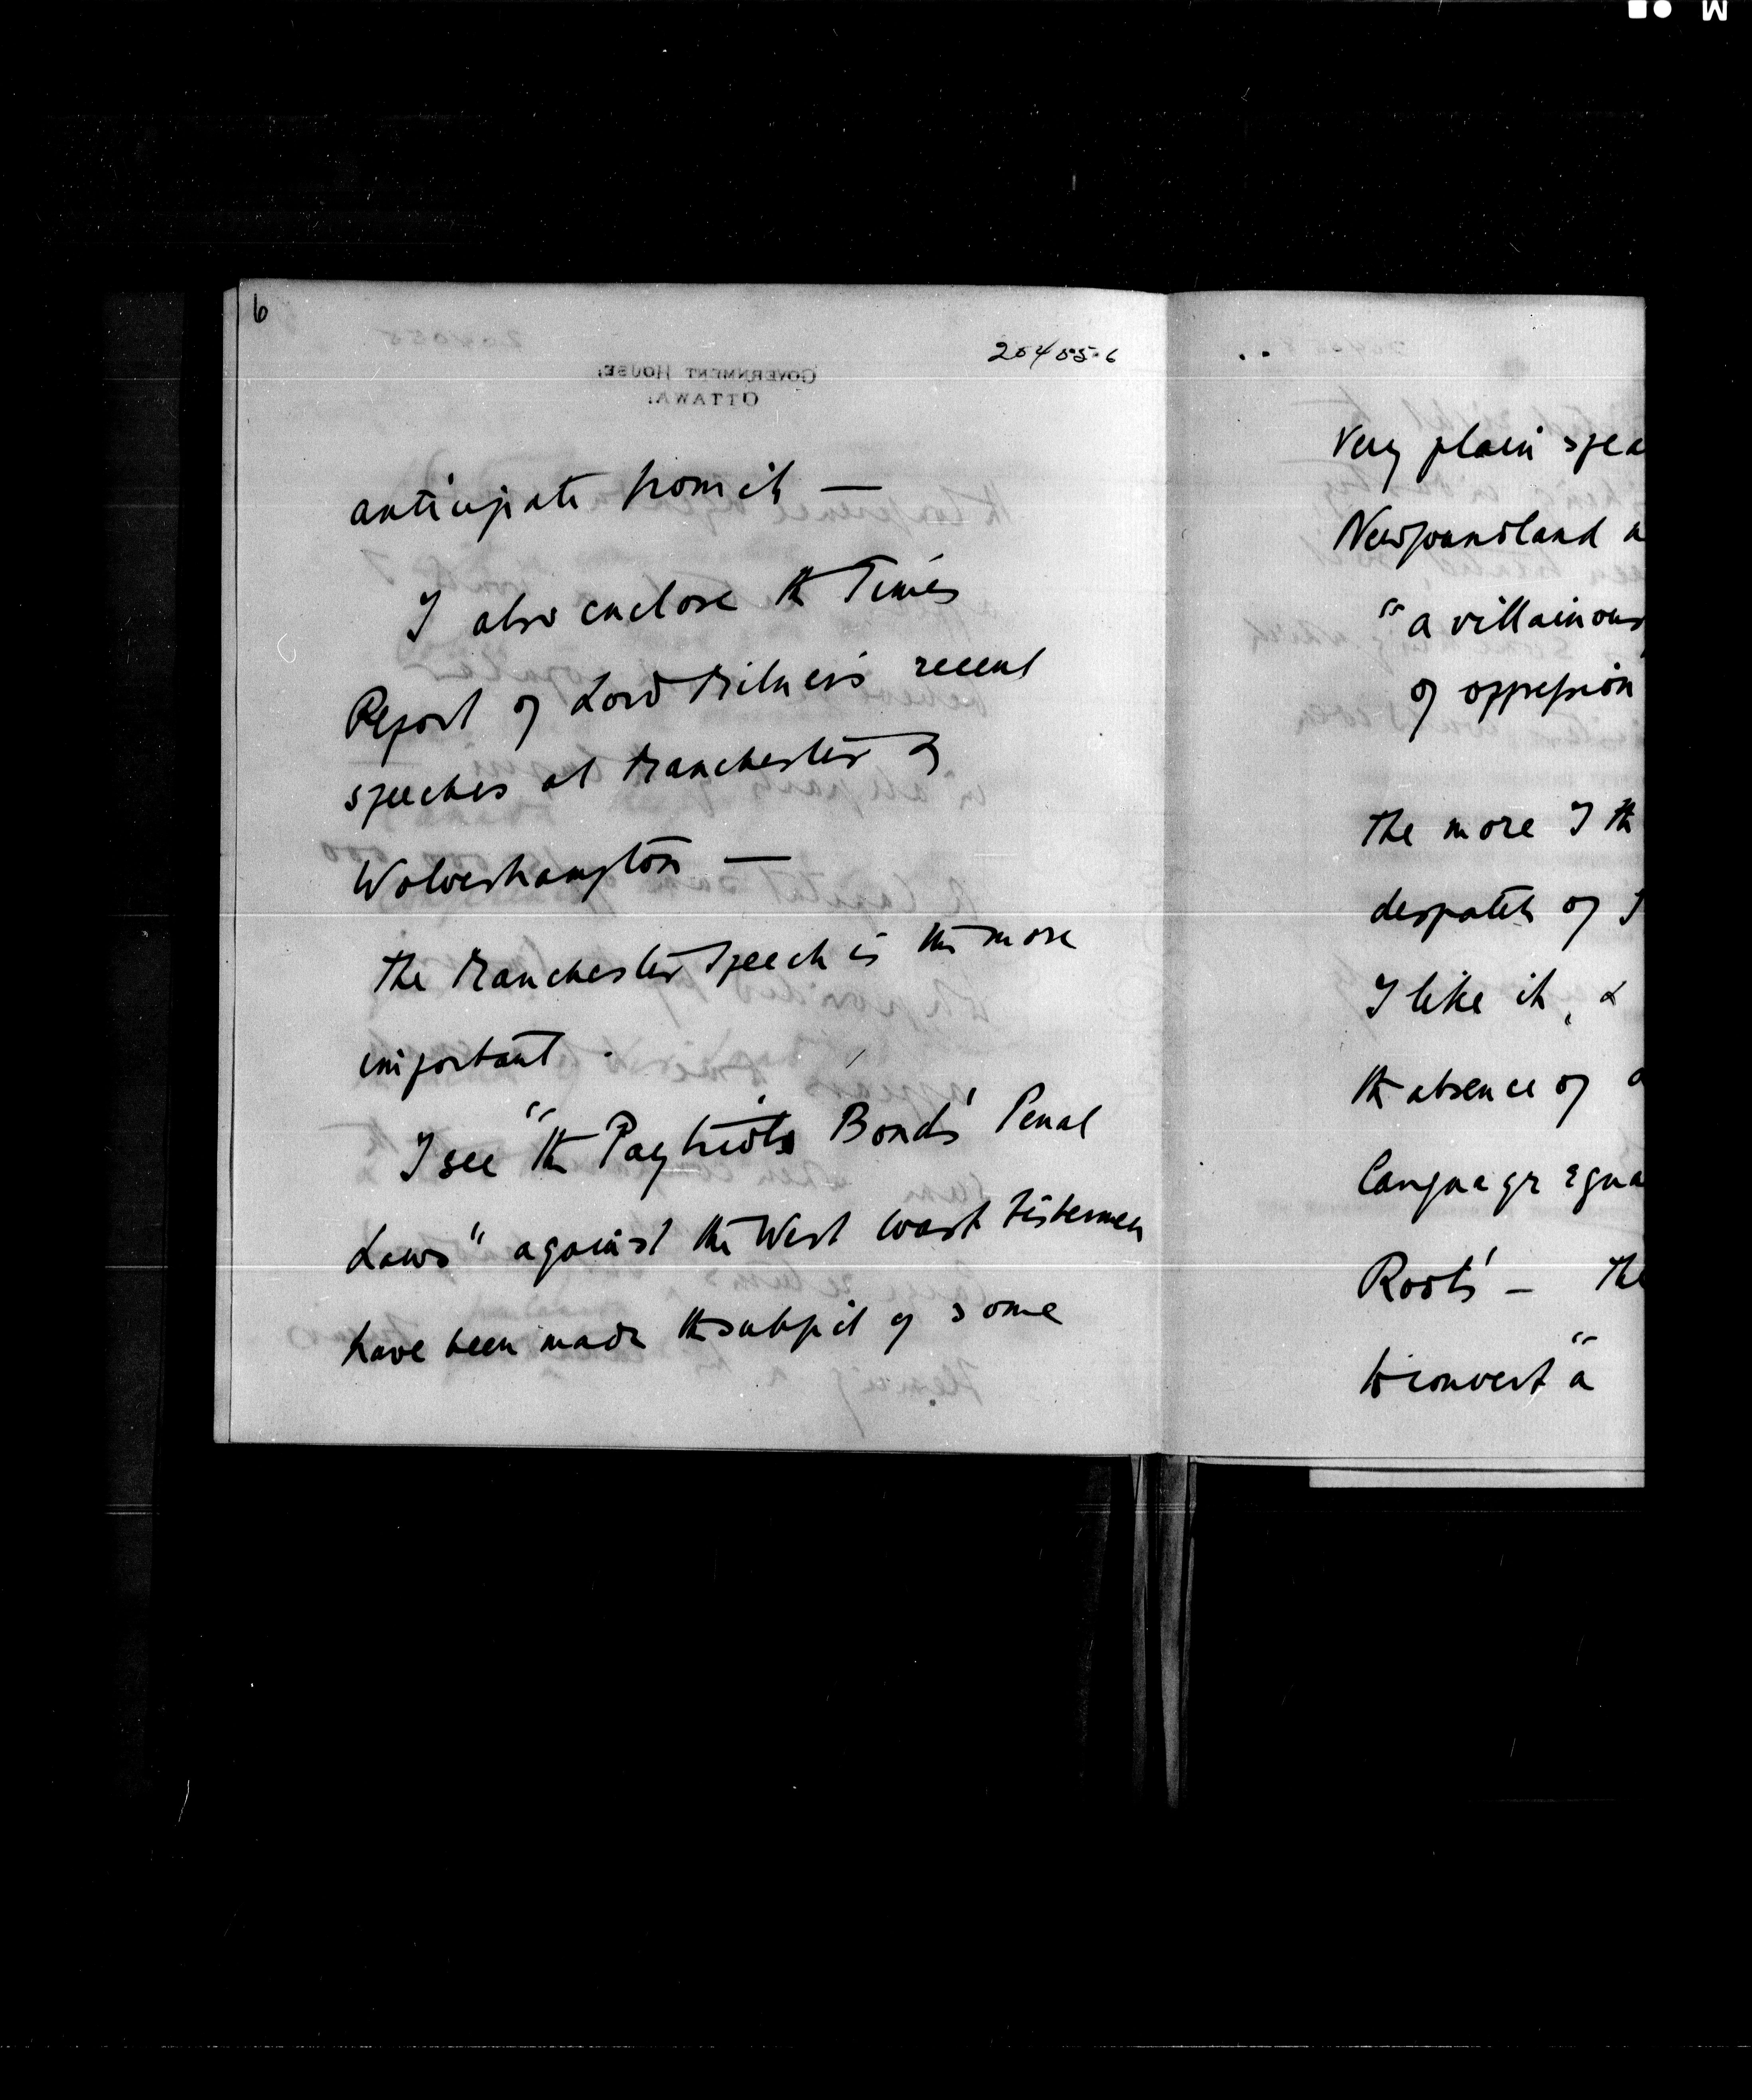 6
204056
GOVERNMENT HOUSE,
OTTAWA.
anticipate from it —
I also enclose th Times
Report of Lord Milner's recent
speeches at Manchester &
Wolverhampton —
The Manchester Speech is the more
important .
I see "th Patriots Bonds' Penal
Laws" against the West Coast Fishermen
have been made th subject of some
Very plain spea
Newfoundland
"a villainous
of oppression
The more I th
despatch of
I like it, &
th absence of
Language equa
Roots' — The
to convert "a